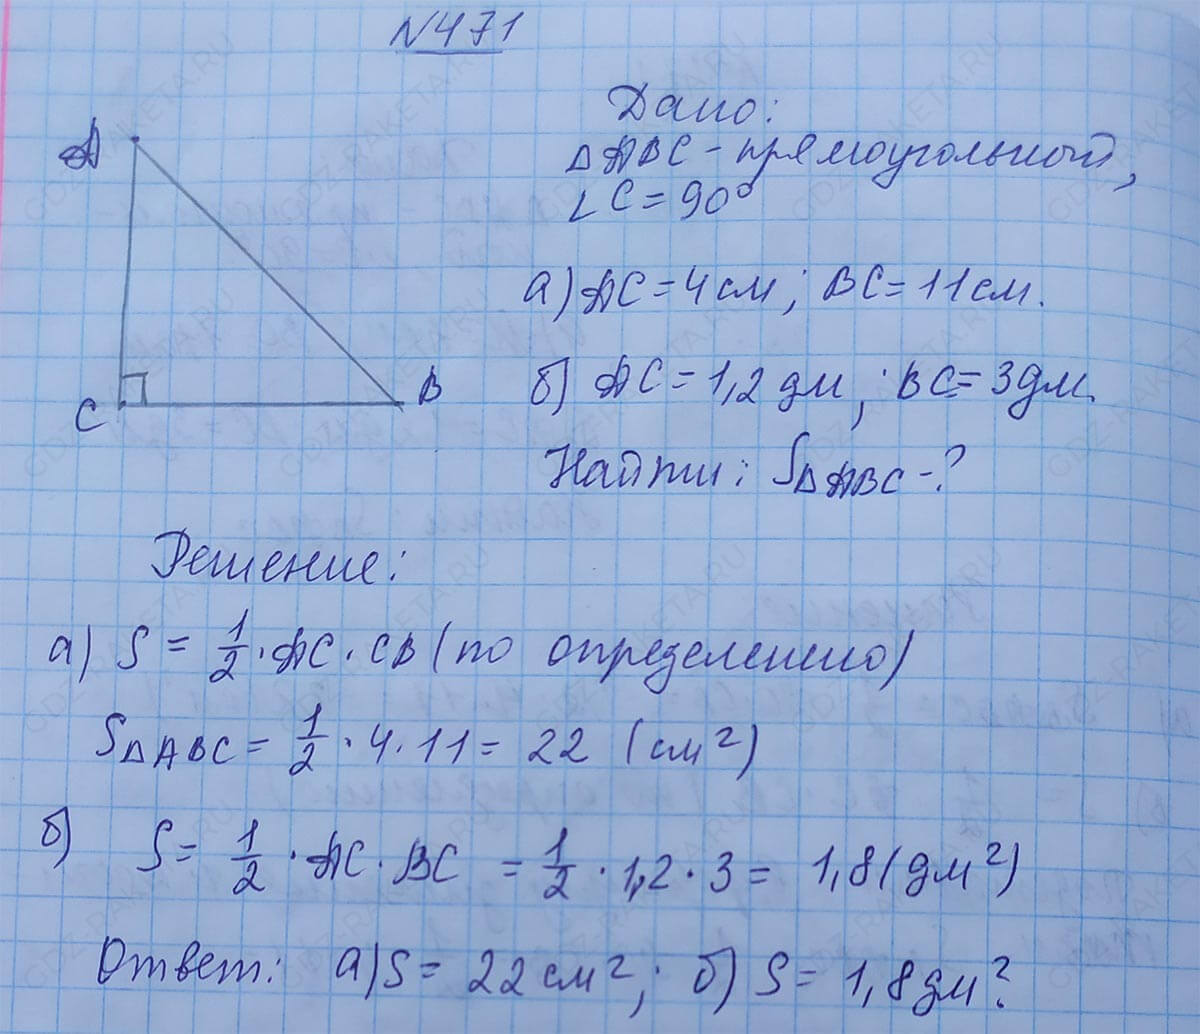 N471
Дано:
A
△ABC - прямоугольный,
∠C = 90°
а) AC = 4 см; BC = 11 см.
C
B
б) AC = 1,2 дм; BC = 3 дм.
Найти: S△ABC - ?
Решение:
а) S = 1/2 · AC · CB (по определению)
S△ABC = 1/2 · 4 · 11 = 22 (см²)
б) S = 1/2 · AC · BC = 1/2 · 1,2 · 3 = 1,8 (дм²)
Ответ: а) S = 22 см²; б) S = 1,8 дм².
GDZ-RAKETA.RU